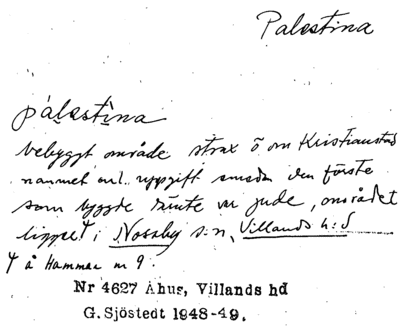 Palestina
pálestìna
bebyggt område strax ö om Kristianstad
namnet enl. uppgift emedan den förste
som byggde där var jude, området
ligger i Nosaby s:n, Villands h:d
å Hammar nr 9.
Nr 4627 Åhus, Villands hd
G. Sjöstedt 1948-49.